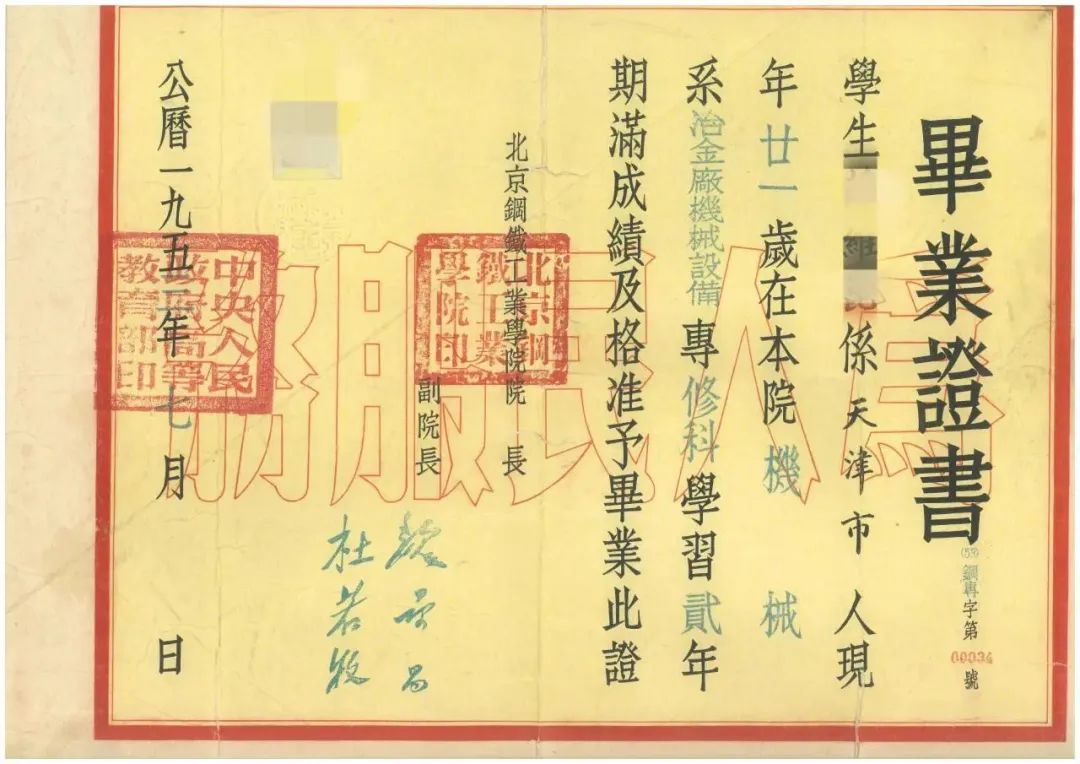 畢業證書
(53)鋼專字第00034號
學生 係天津市人現
年廿一歲在本院機械
系冶金廠機械設備專修科學習貳年
期滿成績及格准予畢業此證
北京鋼鐵工業學院院長
副院長
魏景昌
杜若牧
公曆一九五三年七月 日
北京鋼
鐵工業
學院印
中央人民
政府高等
教育部印
為人民服務